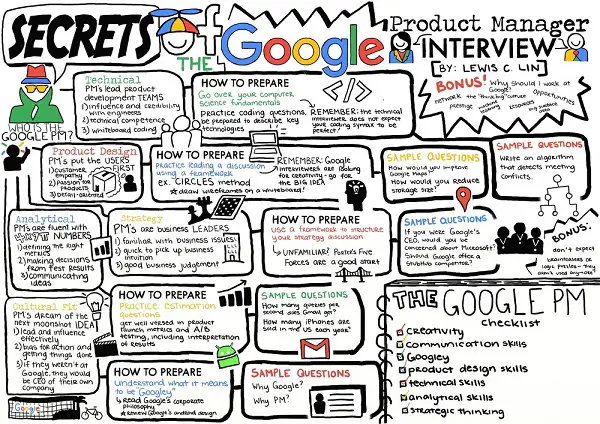 SECRETS Of
THE Google
Product Manager
INTERVIEW
[BY: LEWIS C. LIN]
BONUS! Why should I work at
Google?
network the "thinking" culture opportunities
prestige machine learning resources big audience data
WHO IS THE
GOOGLE PM?
Technical
PMs lead product
development TEAMS
1) influence and credibility
with engineers
2) technical competence
3) whiteboard coding
HOW TO PREPARE
Go over your computer
science fundamentals
practice coding questions,
be prepared to describe key
technologies
REMEMBER: the technical
interviewer does not expect
your coding syntax to be
perfect!
Product Design
PM's put the USERS
FIRST
1) customer
empathy
2) passion for
products
3) detail-oriented
HOW TO PREPARE
practice leading a discussion
using a framework
ex. "CIRCLES method
draw wireframes on a whiteboard!
REMEMBER: Google
interviewers are looking
for creativity - go for
the BIG IDEA
SAMPLE QUESTIONS
How would you improve
Google Maps?
How would you reduce
storage size?
SAMPLE QUESTIONS
Write an algorithm
that detects meeting
conflicts.
Analytical
PMs are fluent with
NUMBERS
1) defining the right
metrics
2) making decisions
from test results
3) communicating
ideas
Strategy
PM's are business LEADERS
1) familiar with business issues
2) quick to pick up business
intuition
3) good business judgement
HOW TO PREPARE
Use a framework to structure
your strategy discussion
UNFAMILIAR? Porter's Five
Forces are a good start
SAMPLE QUESTIONS
If you were Google's
CEO, would you be
concerned about Microsoft?
Should Google offer a
StubHub competitor?
BONUS:
don't expect
brainteasers or
logic puzzles - they
aren't used anymore!
Cultural Fit
PM's dream of the
next moonshot IDEA
1) lead and influence
effectively
2) bias for action and
getting things done
3) if they weren't at
Google, they would
be CEO of their own
company
Google
HOW TO PREPARE
PRACTICE ESTIMATION
QUESTIONS
get well versed in product
launch metrics and A/B
testing, including interpretation
of results
SAMPLE QUESTIONS
How many queries per
second does Gmail get?
How many iPhones are
sold in the US each year?
HOW TO PREPARE
Understand what it means
to be "Googley"
Read Google's corporate
philosophy
Review Google's android design
SAMPLE QUESTIONS
Why Google?
Why PM?
THE GOOGLE PM
checklist
creativity
communication skills
Googley
product design skills
technical skills
analytical skills
strategic thinking